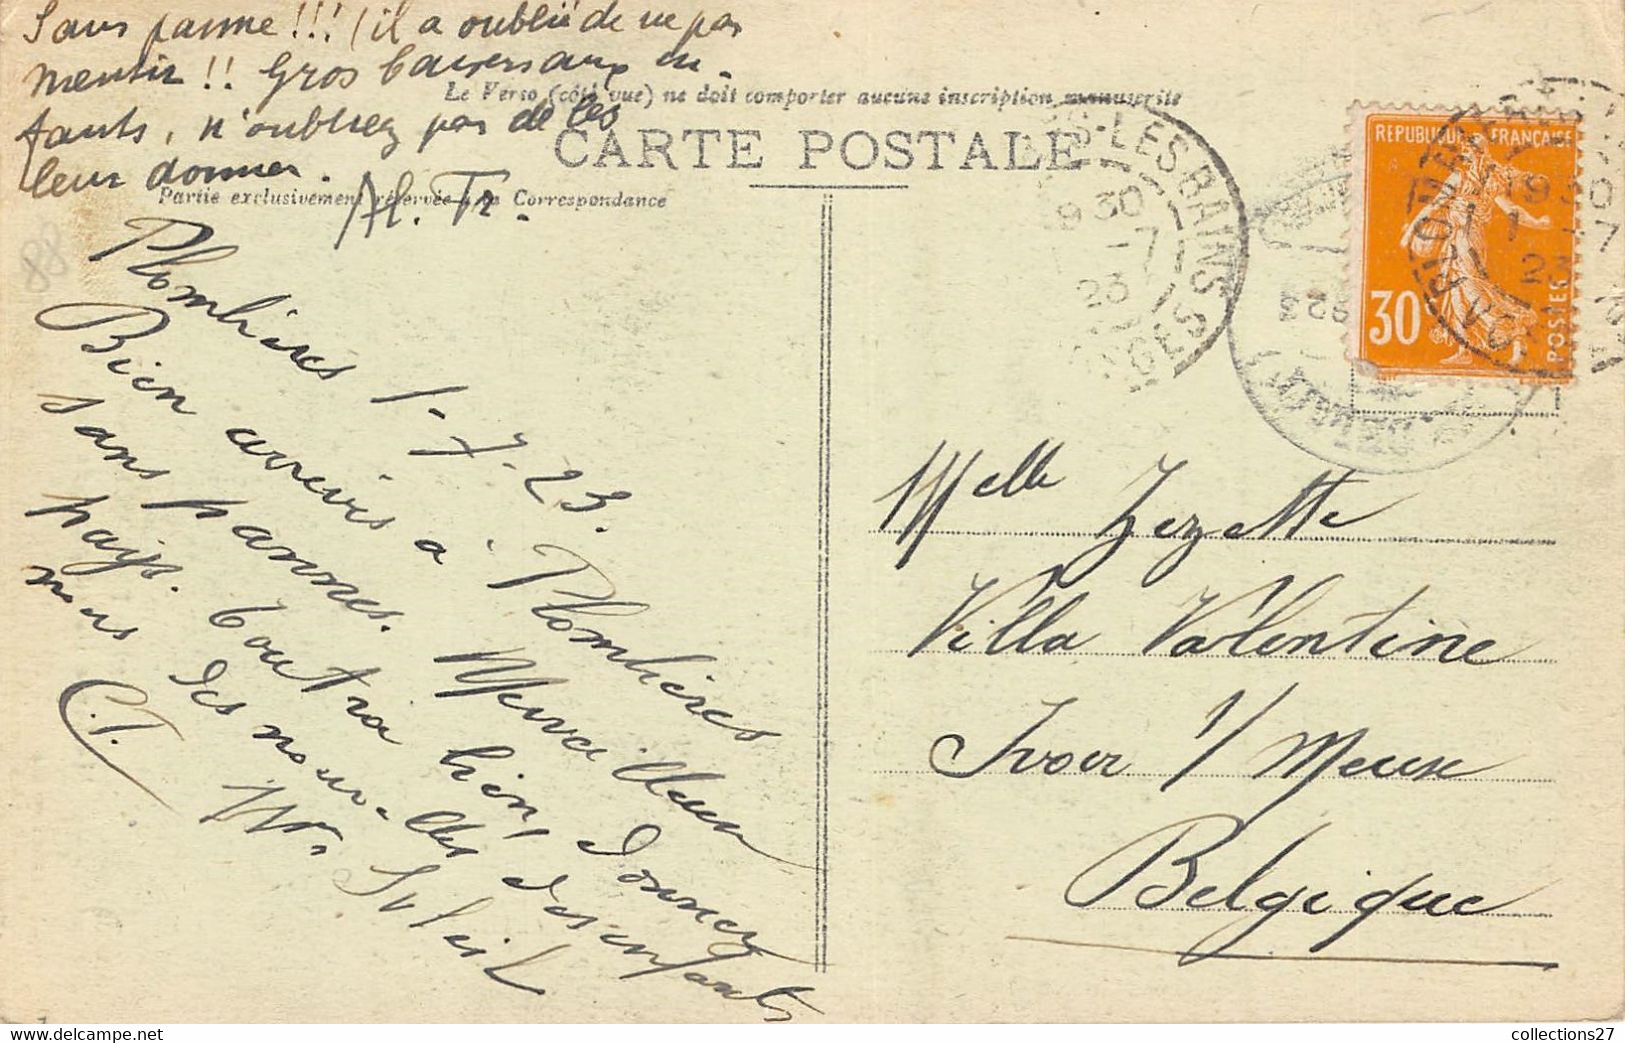 Sans panne!!! (il a oublié de ne pas
mentir!! Gros baisers aux en-
fants, n'oubliez pas de les
leur donner.
Al. Tr.
Le Verso (côté vue) ne doit comporter aucune inscription manuscrite
CARTE POSTALE
Partie exclusivement réservée à la Correspondance
88
Plombières 1-7-23.
Bien arrivés à Plombières
sans pannes. Merveilleux
pays. Tout va bien, donnez
nous des nouvelles des enfants
C.T.
Soleil
S-LES BAINS
9 30
-7
23
VOSGES
REPUBLIQUE FRANÇAISE
30
POSTES
19 30
1 -7
23
Melle Zezette
Villa Valentine
Yvoir s/ Meuse
Belgique
collections27